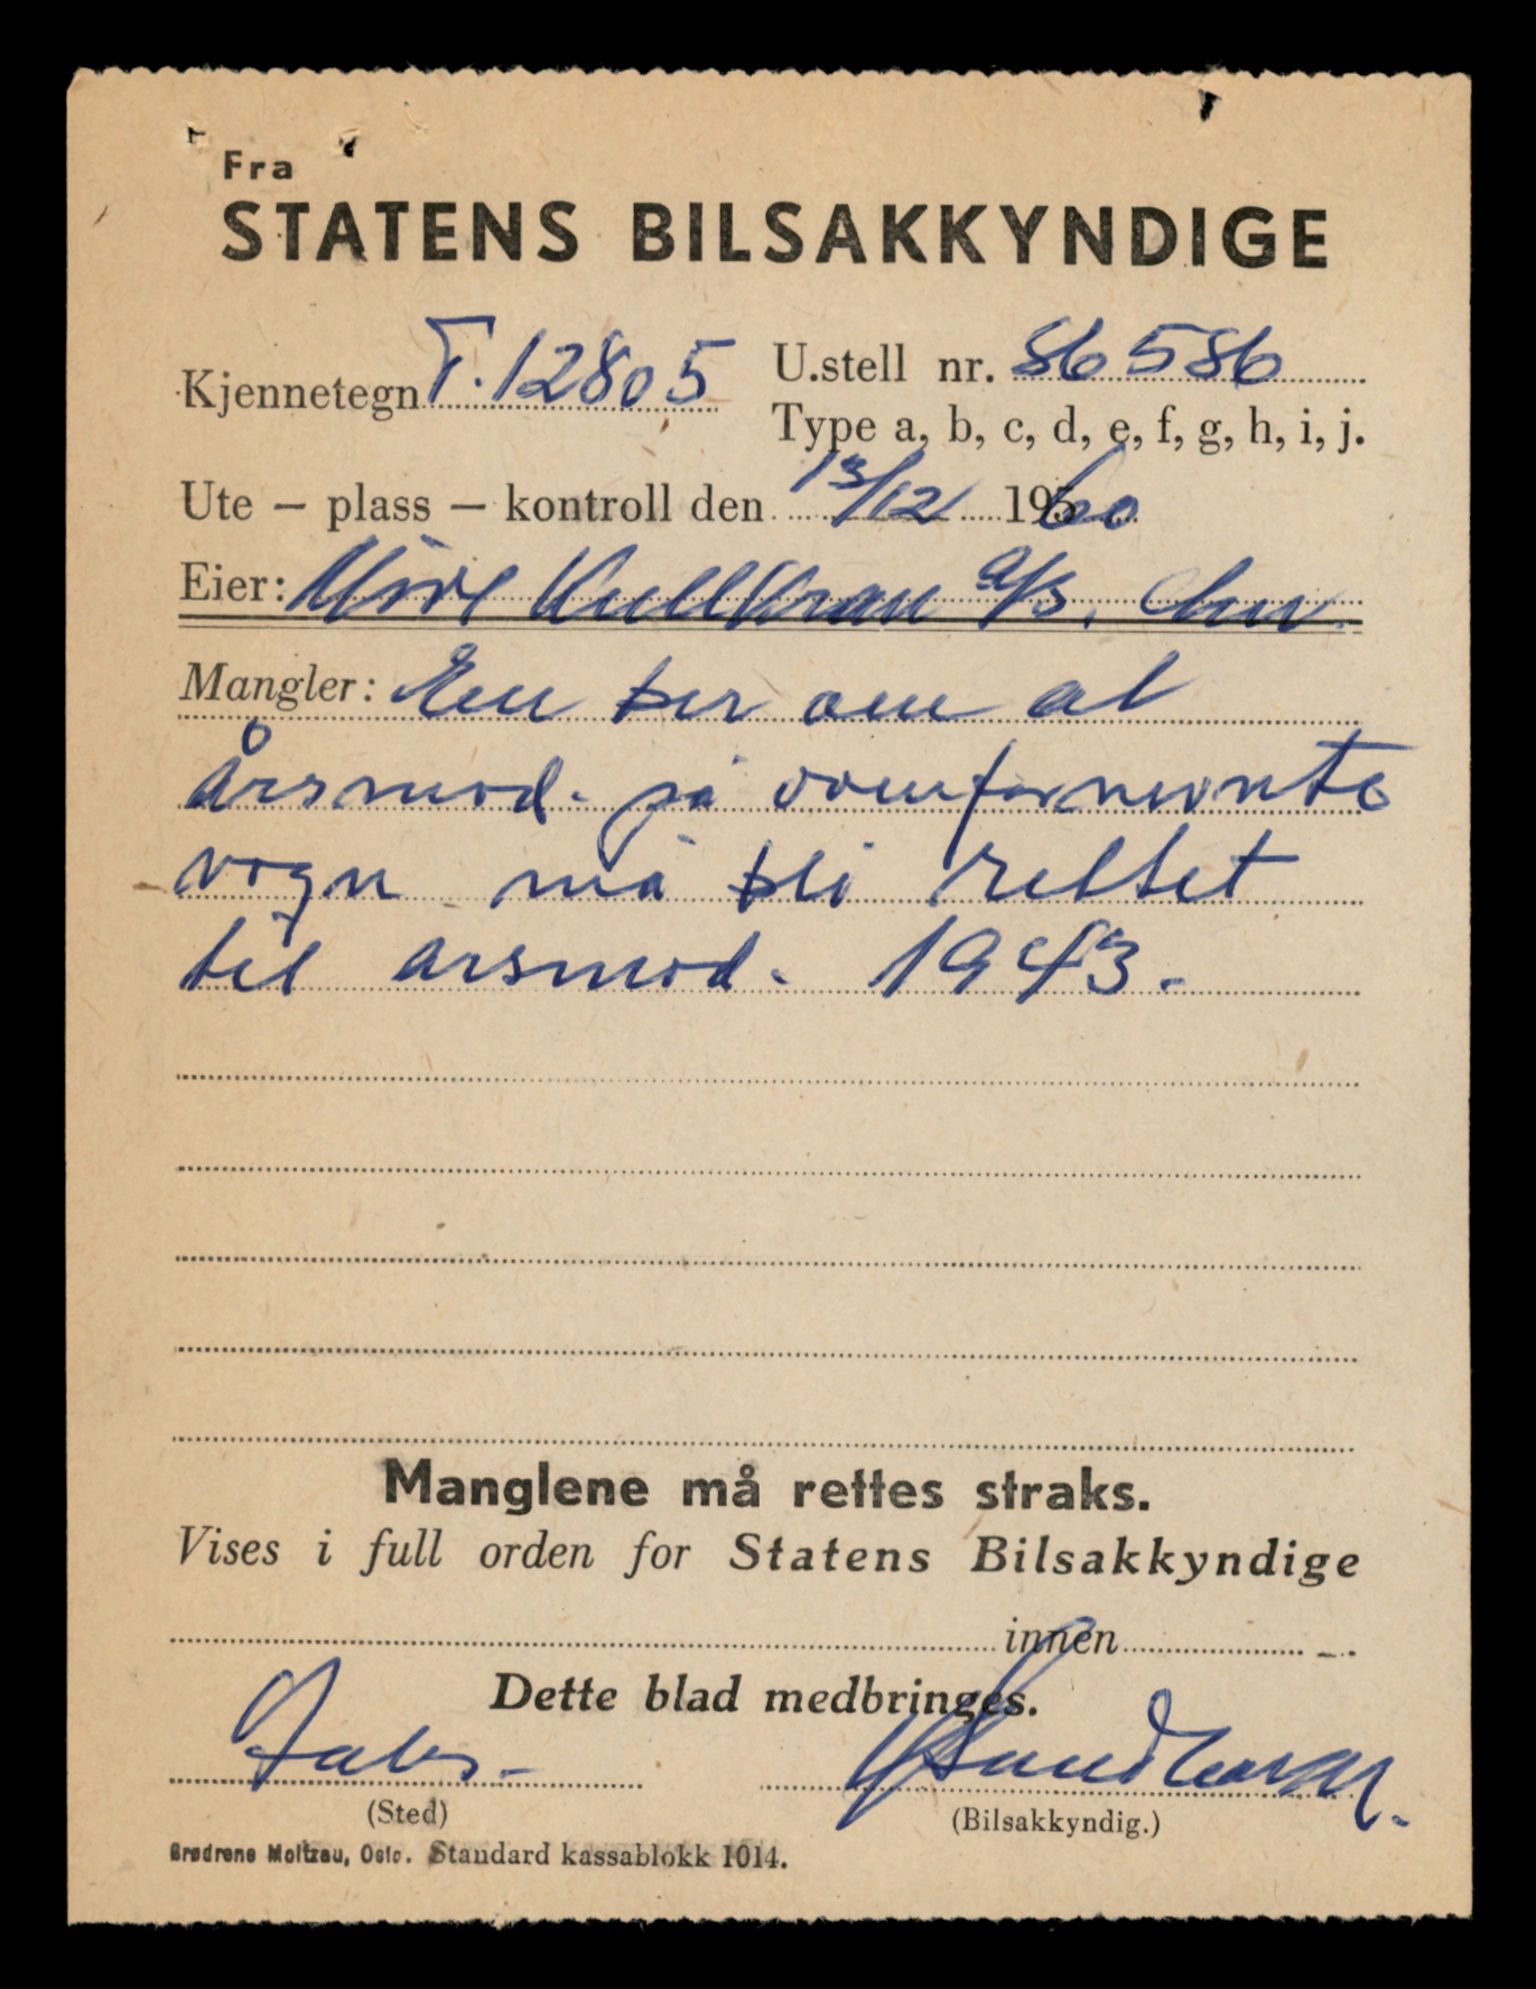 Fra
STATENS BILSAKKYNDIGE
Kjennetegn T.12805 U.stell nr. 86586
Type a, b, c, d, e, f, g, h, i, j.
Ute – plass – kontroll den 13/12 1960
Eier: a/s,
Mangler: En ber om at
årsmod. på ovenfornevnte
vogn må bli rettet
til årsmod. 1943.
Manglene må rettes straks.
Vises i full orden for Statens Bilsakkyndige
innen
Dette blad medbringes.
(Sted) (Bilsakkyndig.)
Brødrene Moltzau, Oslo. Standard kassablokk 1014.